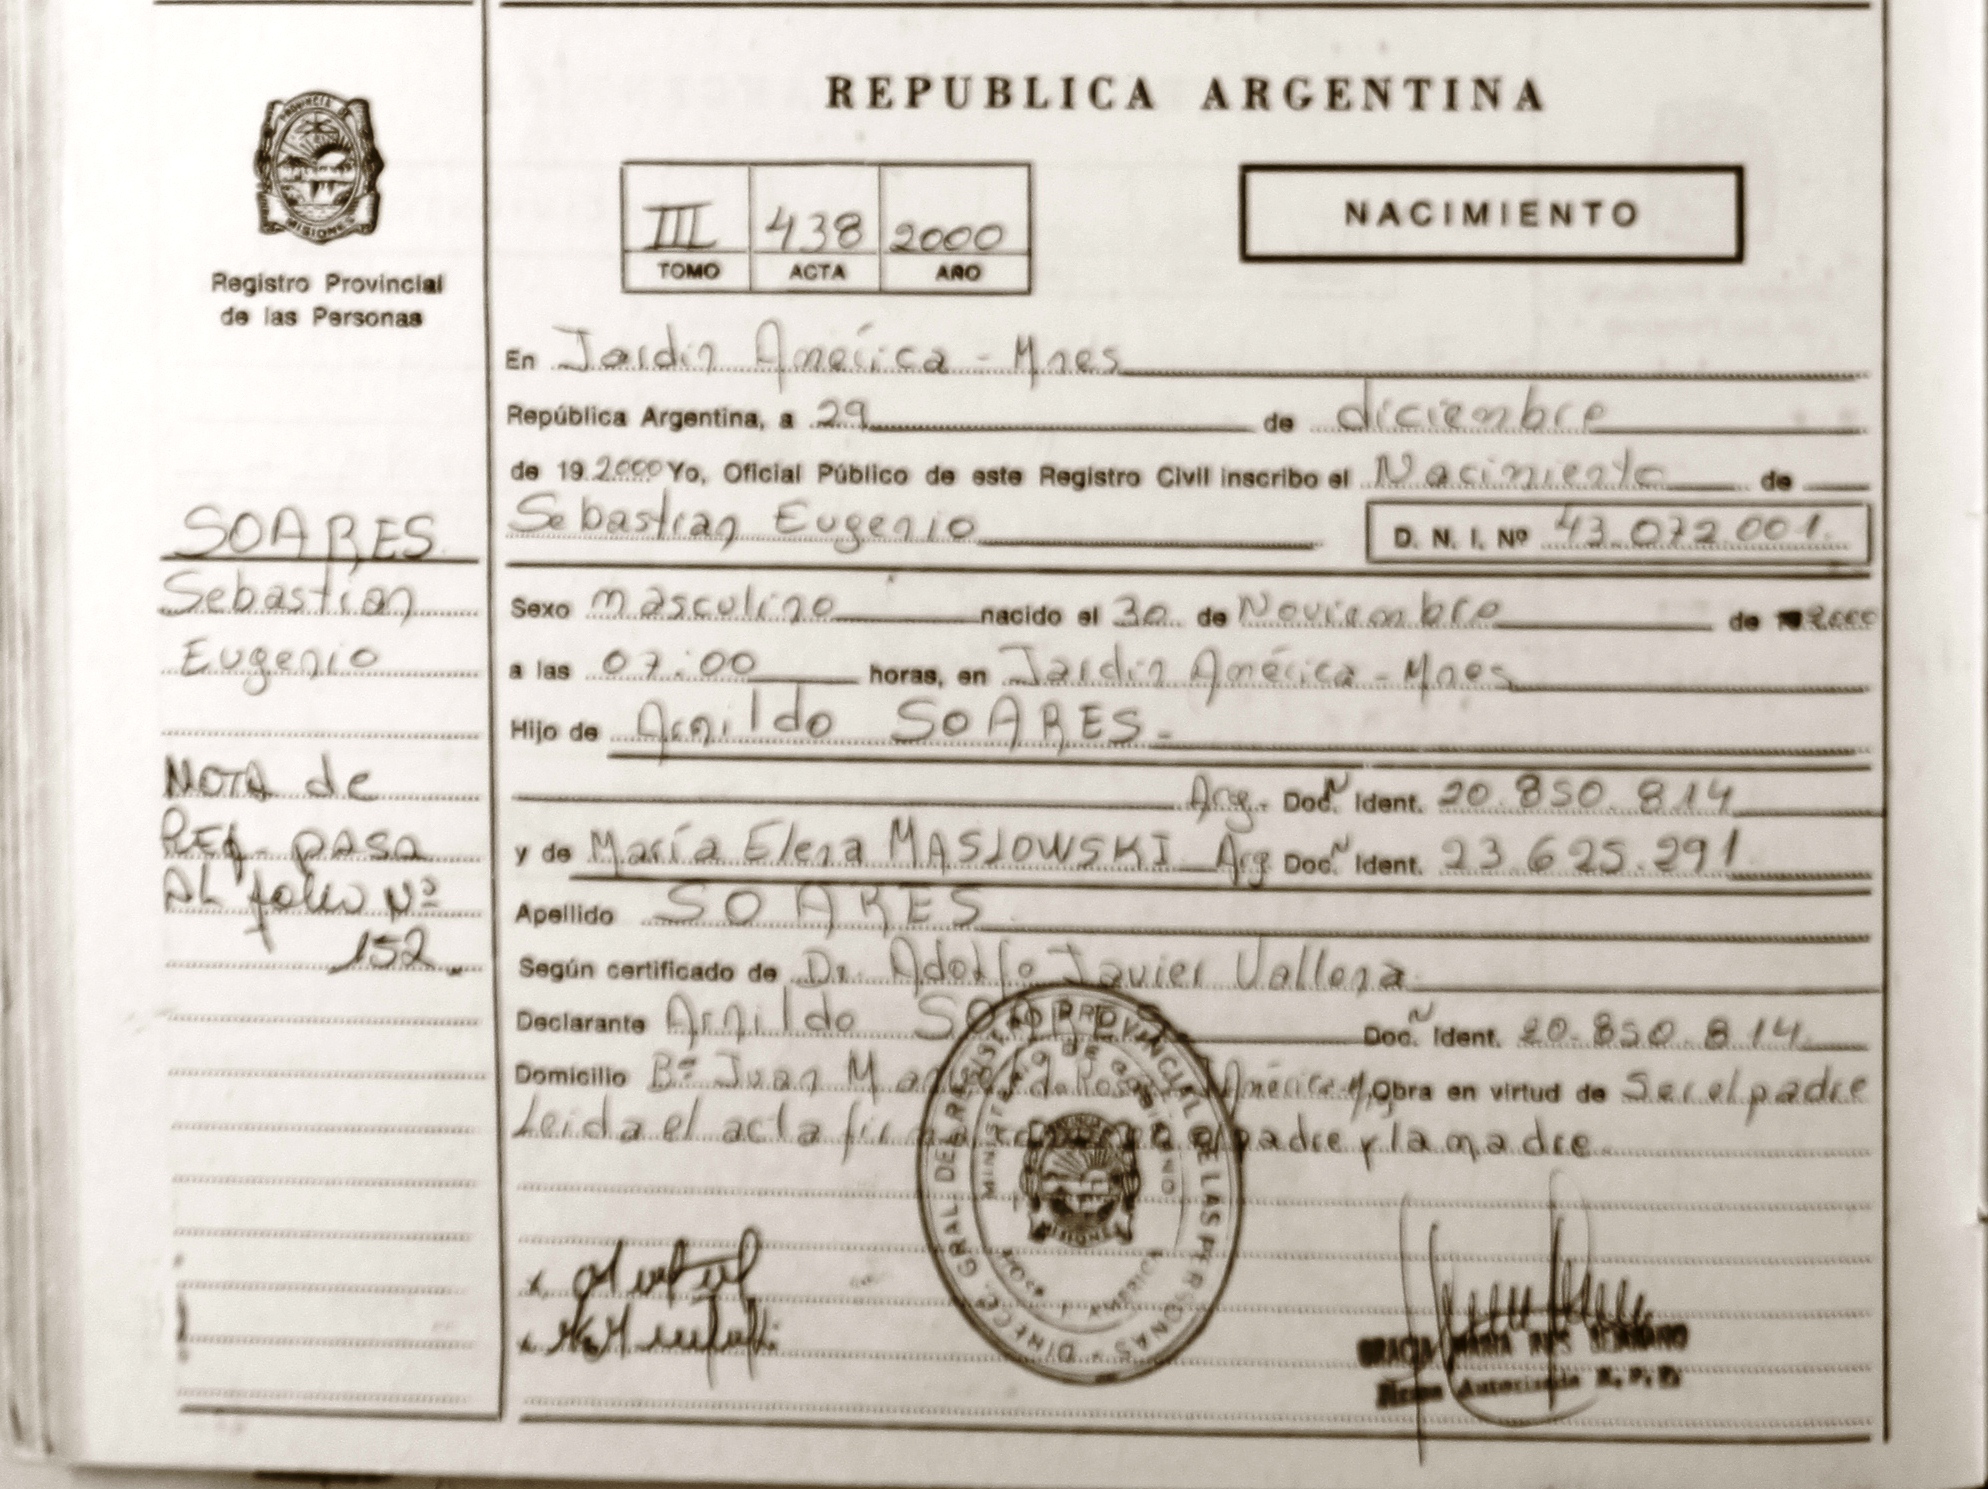 REPUBLICA ARGENTINA
PROVINCIA DE
MISIONES
Registro Provincial
de las Personas
III 438 2000
TOMO ACTA AÑO
NACIMIENTO
En Jardín América - Mnes
República Argentina, a 29 de diciembre
de 19 2000 Yo, Oficial Público de este Registro Civil inscribo el Nacimiento de
Sebastian Eugenio D. N. I. Nº 43.072.001.
Sexo masculino nacido el 30 de Noviembre de 2000
a las 07:00 horas, en Jardín América - Mnes
Hijo de Arnildo SOARES.-
Arg. Doc. N Ident. 20.850.814
y de María Elena MASLOWSKI Arg Doc. N Ident. 23.625.291
Apellido SOARES
Según certificado de Dr. Adolfo Javier Vallena
Declarante Arnildo SOARES Doc. N Ident. 20.850.814
Domicilio Bº Juan M América Obra en virtud de Ser el padre
Leida el acta el padre y la madre.
SOARES
Sebastian
Eugenio
NOTA de
REF. pasa
AL folio Nº
152.
DIREC. GRAL DE REGISTRO PROVINCIAL DE LAS PERSONAS
MINISTERIO DE GOBIERNO
MISIONES
AMERICA
MARIA
Autorizada R. P. P.